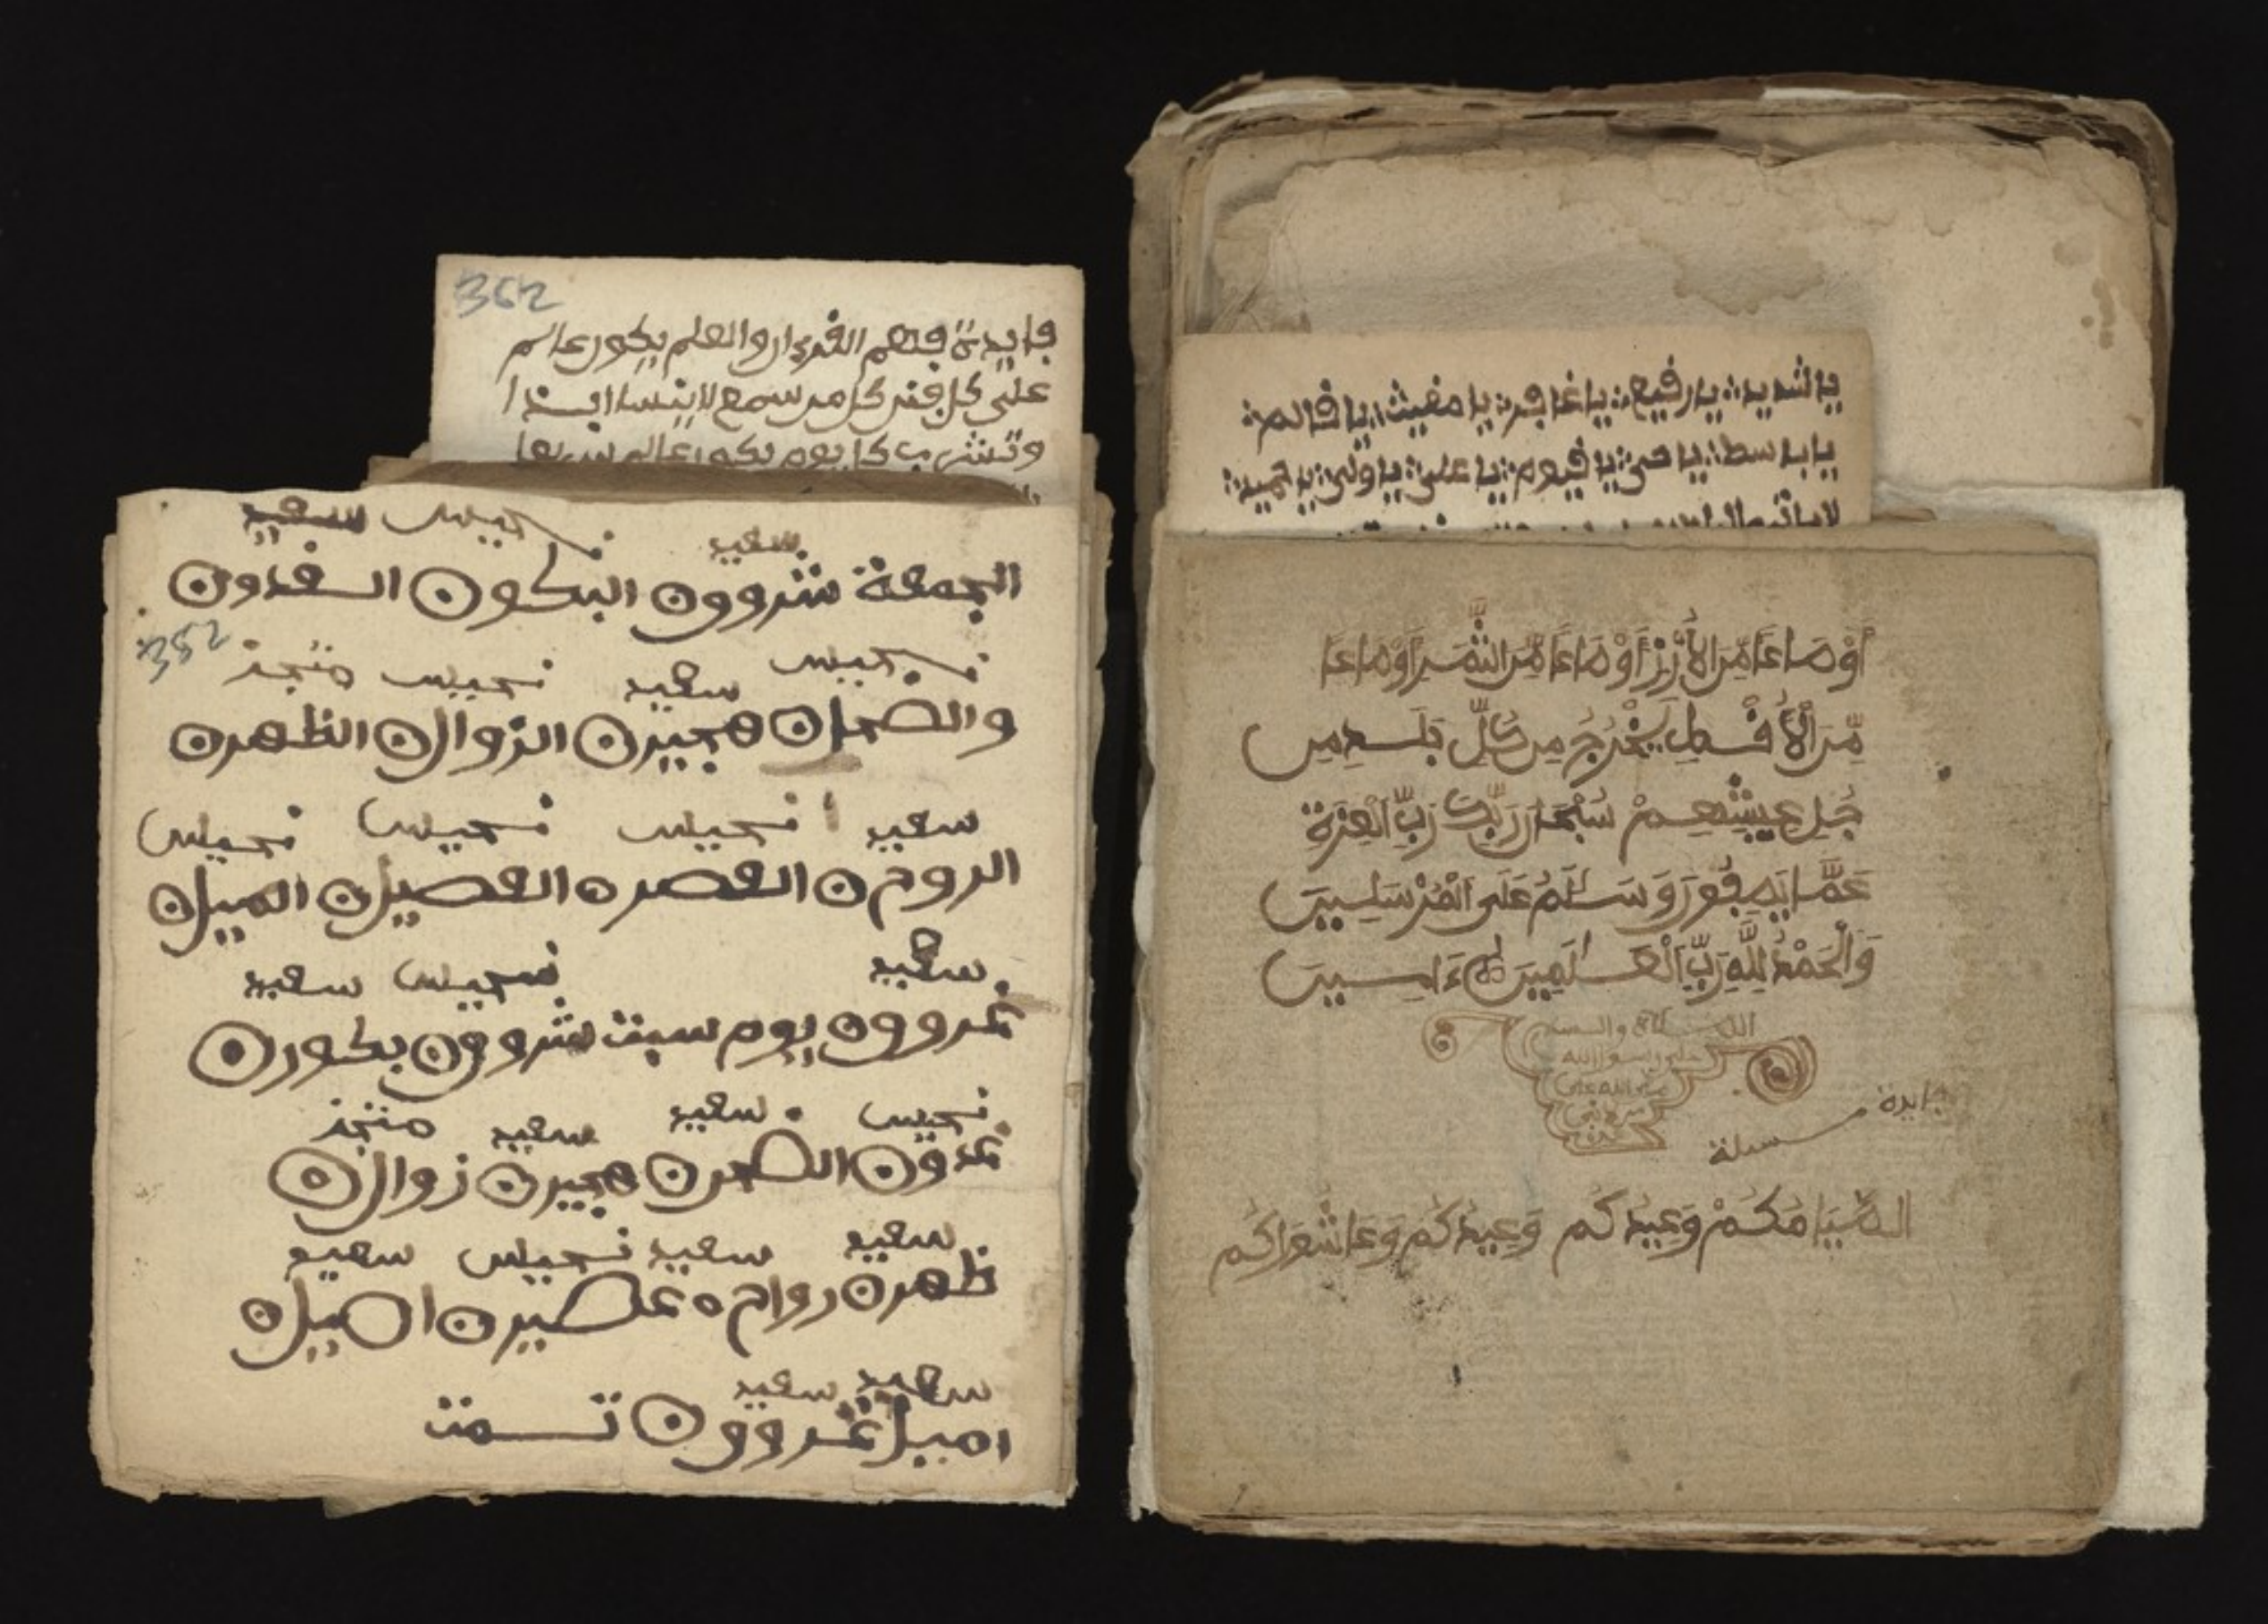 362
فايدة فهم القرءان والعلم يكون عالم
على كل فن كل من سمع لا ينسا ابدا
وتشرب كل يوم يكون عالم
نحيس سعيد
سعيد
الجمعة شروون البكون الغدون
352
نحيس سعيد نحيس منجز
والضحان هجيرن الزوالن الظهرن
سعيد نحيس نحيس نحيس
الروح ن العصره العصيرن الميلن
سعيد نحيس سعيد
غروون يوم سبت شروون بكورن
نحيس سعيد سعيد منجز
غدون الضحن هجيرن زوالن
سعيد سعيد نحيس سعيد
ظهرن رواح ه عصيرن اصيلن
سعيد سعيد
اميل غروون تمت
يا شديد يا رفيع يا غافر يا مغيث يا
يا باسط يا حي يا فيوم يا على يا ولي يا حميد
أَوْ صَاعًا مِّنَ الأُرْزِ أَوْ صَاعًا مِّنَ التَّمْرِ أَوْ صَاعًا
مِّنَ الأَقْطِ يُخْرَجُ مِن كُلِّ بَلَدٍ مِن
جُلِ عِيشِهِمْ سُبْحَانَ رَبِّكَ رَبِّ الْعِزَّةِ
عَمَّا يَصِفُونَ وَسَلَامٌ عَلَى الْمُرْسَلِينَ
وَالْحَمْدُ لِلَّهِ رَبِّ الْعَالَمِينَ ءَامِينَ
والسلم
على رسول الله
صلى الله على
فايدة مسلة
الصِّيَامُكُمْ وَعِيدُكُم وَعِيدُكُم وَعَاشُورَاكُم